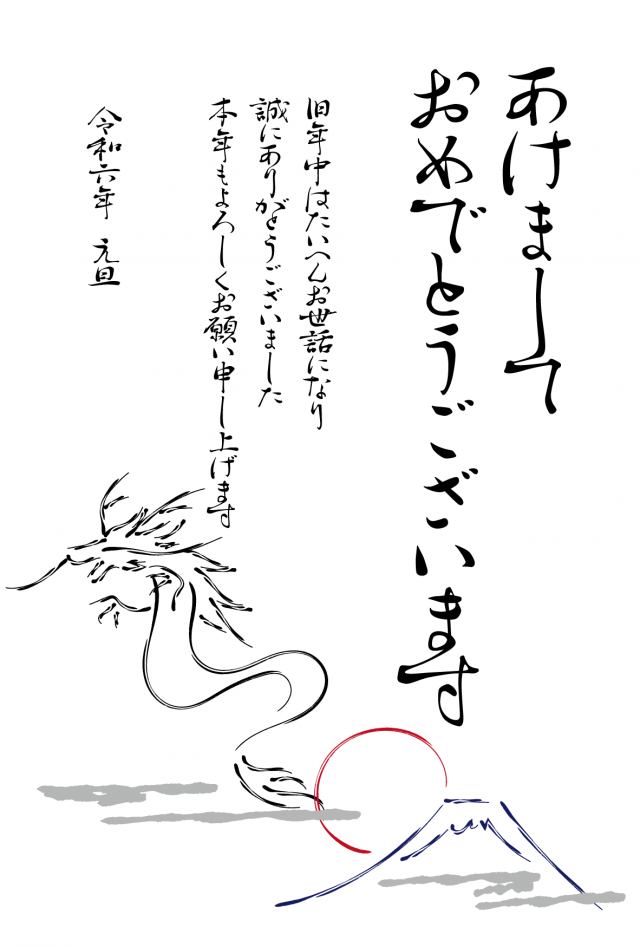 あけまして
おめでとうございます
旧年中はたいへんお世話になり
誠にありがとうございました
本年もよろしくお願い申し上げます
令和六年 元旦